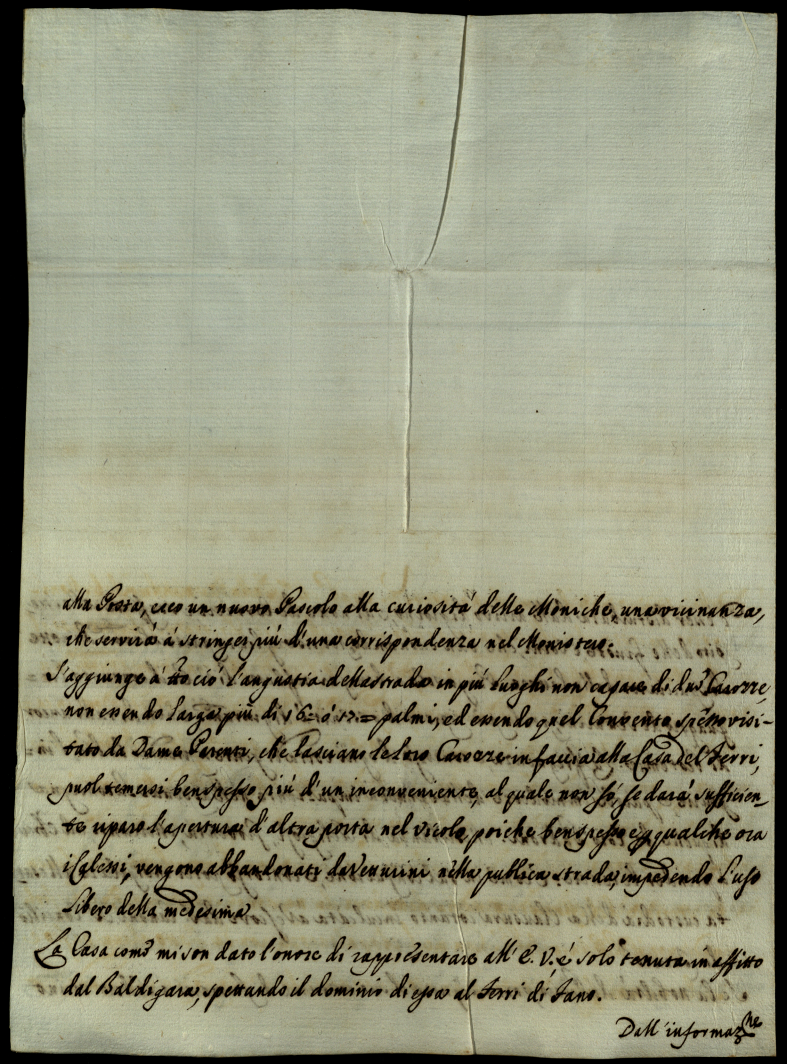 alla Posta, ecco un nuovo Pascolo alla curiosità delle Moniche, una vicinanza,
che servirà á stringer più d'una corrispondenza nel Monistero.
S'aggiunge á tto ciò l'angustia della strada in più luoghi non capace di due Carozze,
non essendo larga più di 16 ó 17 = palmi, ed essendo quel Convento spesso visi-
tato da Dame Parenti, che lasciano le loro Carozze in faccia alla Casa del Ferri,
puol temersi benspesso più d'un inconveniente, al quale non só, se dará sufficien-
te riparo l'apertura d'altra porta nel vicolo, poiche benspesso e p qualche ora
i Calessi, vengono abbandonati da Vetturini nella publica strada, impedendo l'uso
libero della medesima
La Casa come mi son dato l'onore di rappresentare all' E. V. é solo tenuta in affitto
dal Baldigara, spettando il dominio di essa al Ferri di Fano.
Dall'informazne